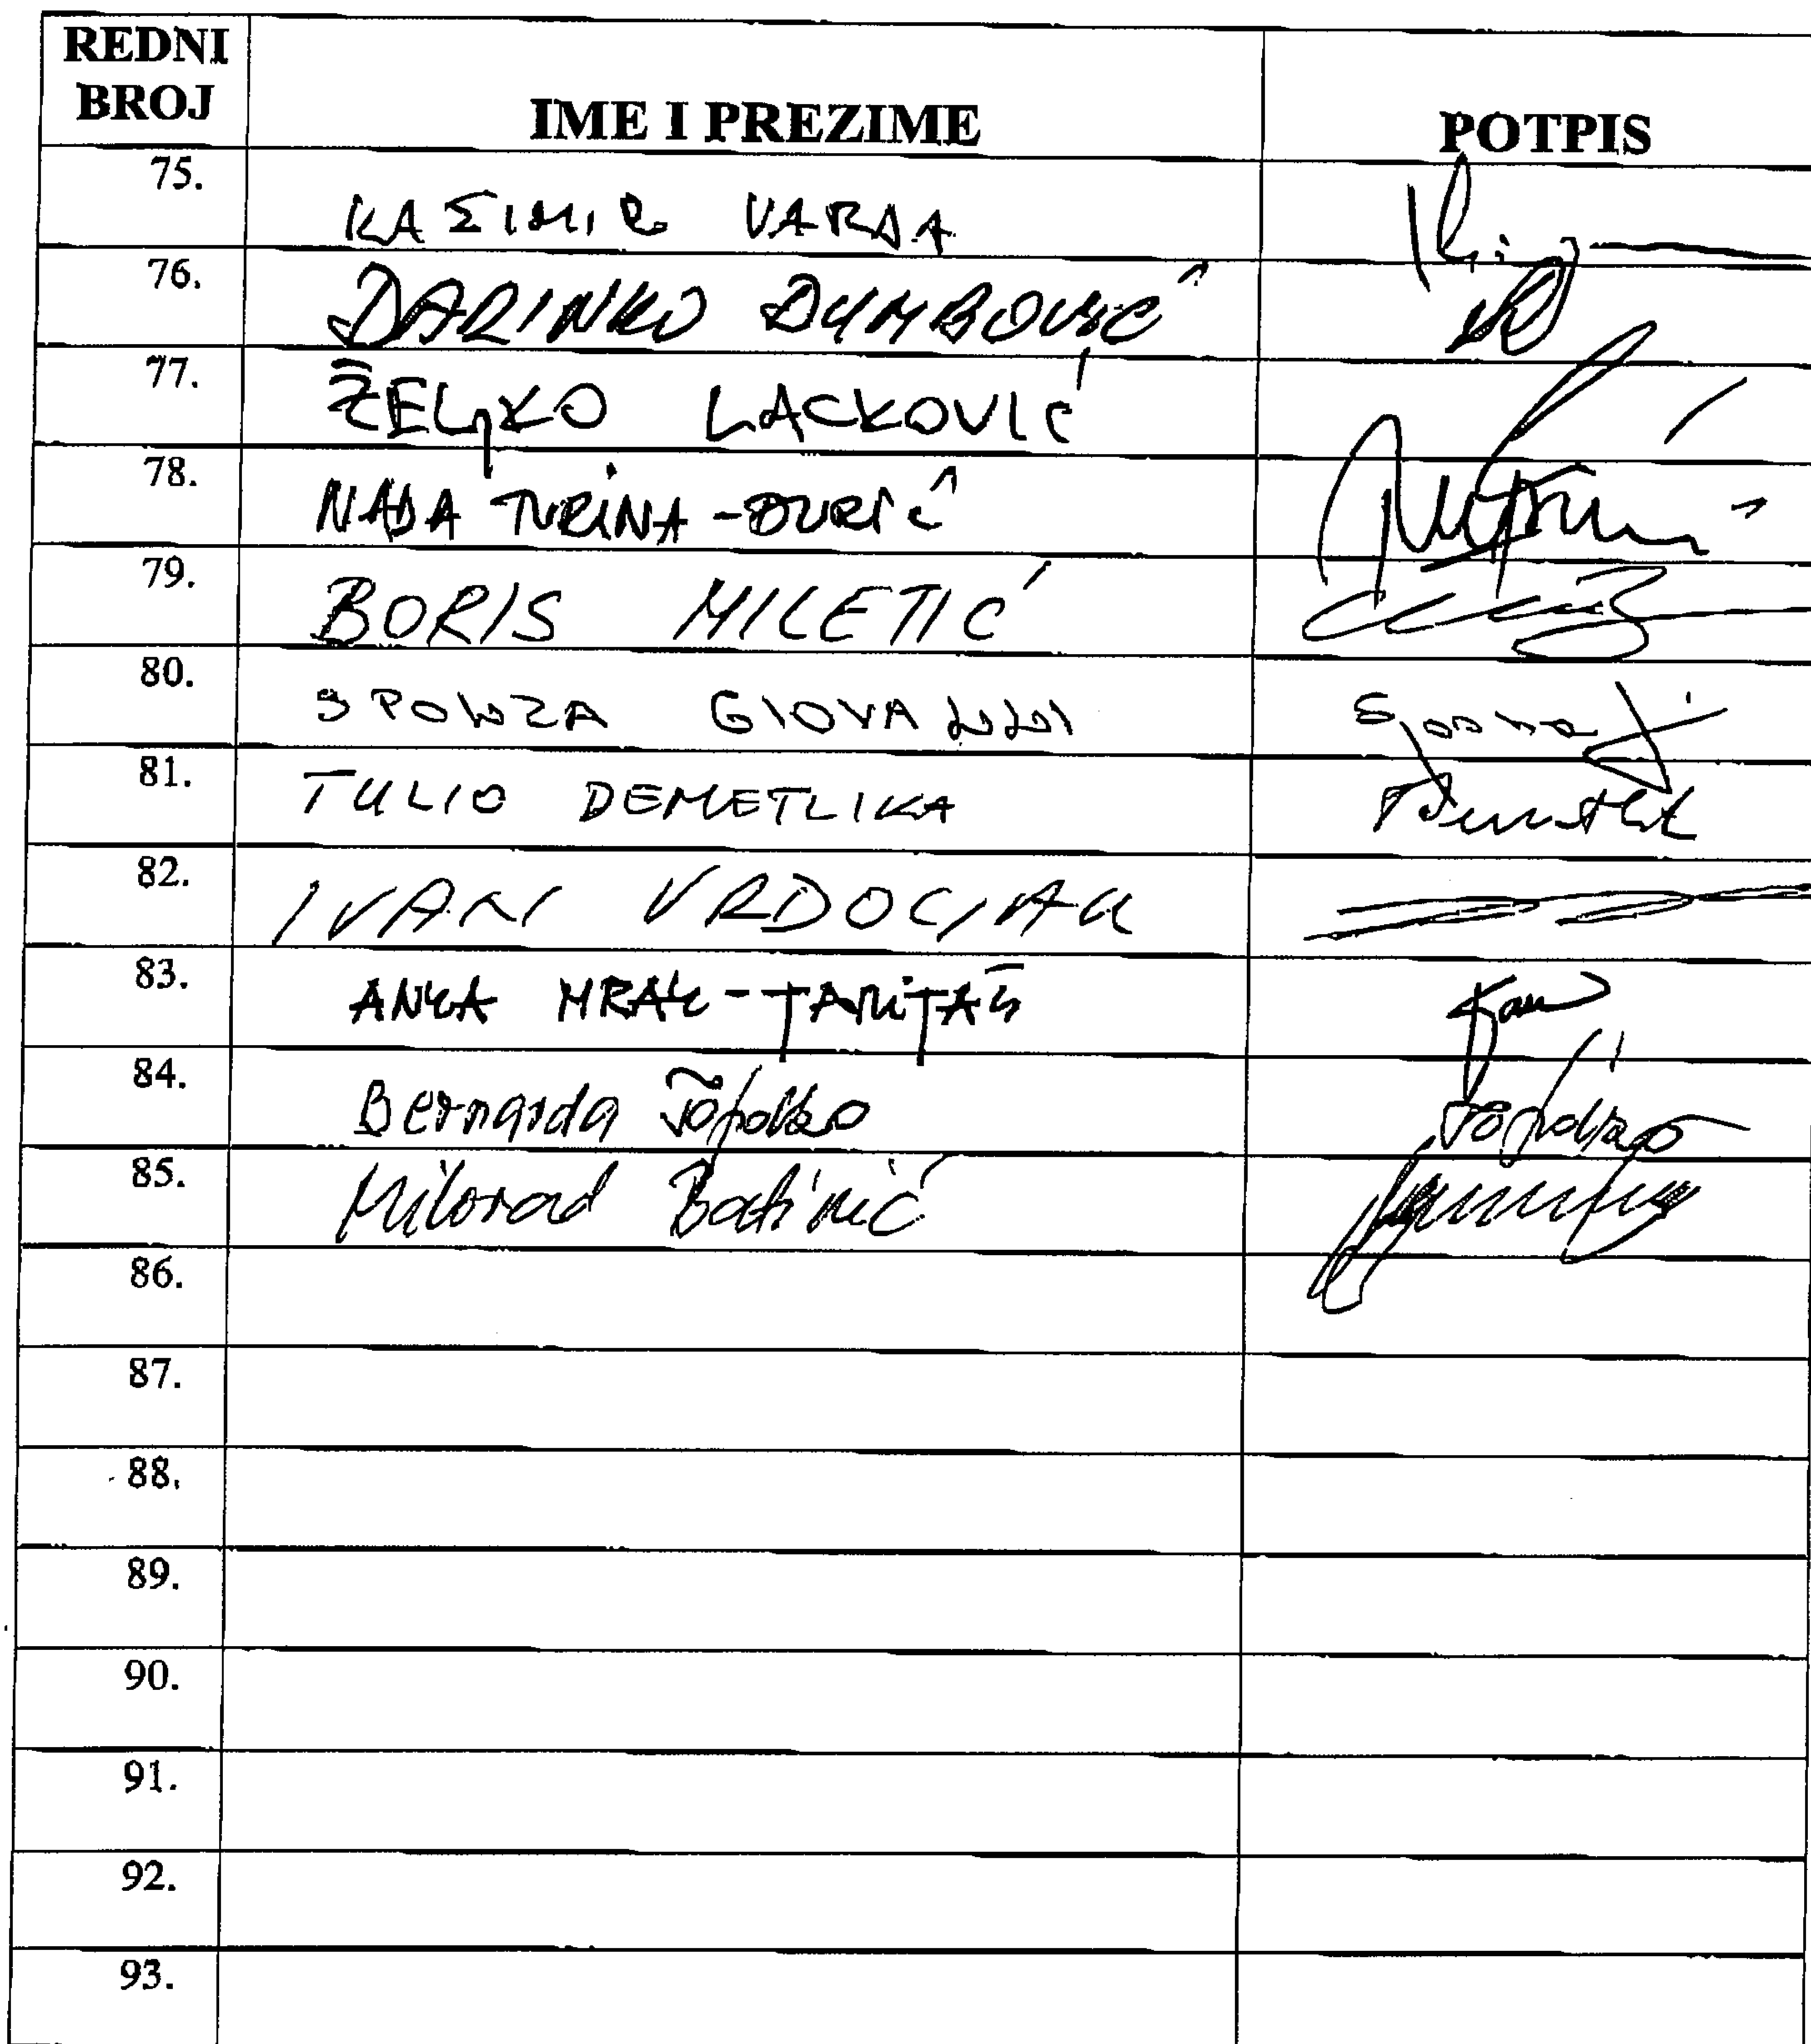 REDNI BROJ IME I PREZIME POTPIS
75. KAZIMIR VARDA
76. DARINKO DUMBOVIĆ
77. ŽELJKO LACKOVIĆ
78. NADA TURINA-ĐURIĆ
79. BORIS MILETIĆ
80. SPONZA GIOVANNI
81. TULIO DEMETLIKA
82. IVAN VRDOLJAK
83. ANKA MRAK-TARITAŠ
84. Bernarda Topolko Topolko
85. Milorad Batinić
86.
87.
88.
89.
90.
91.
92.
93.